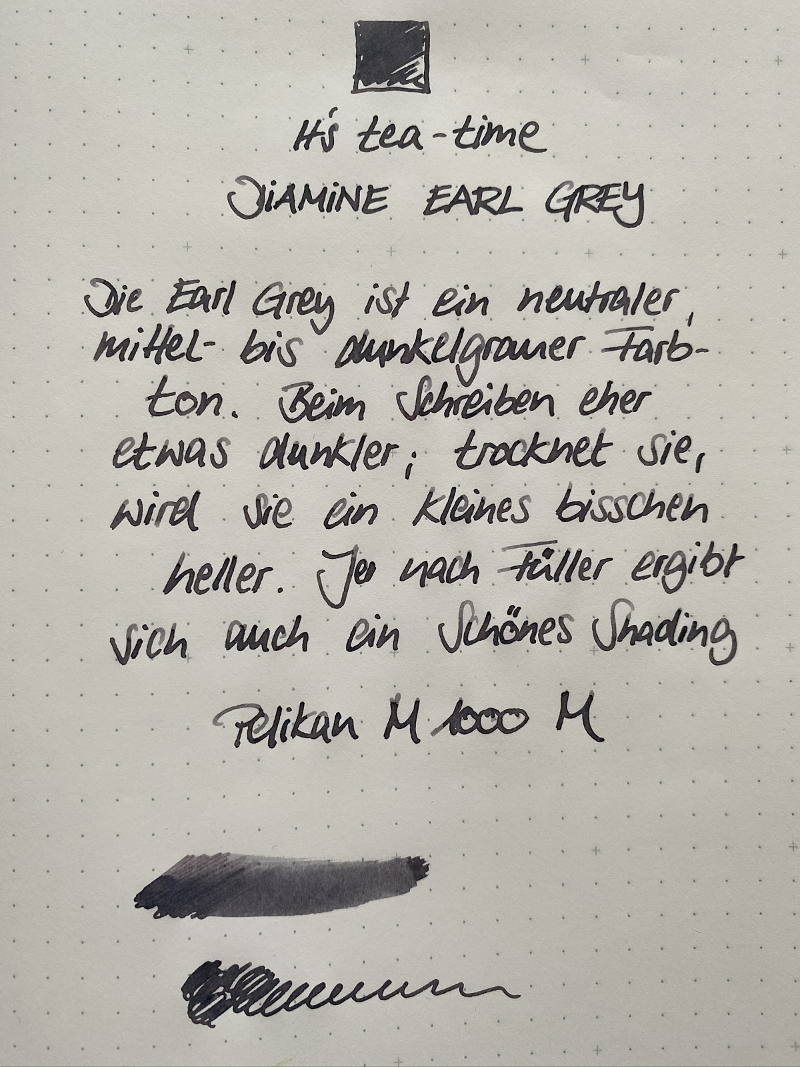 It's tea-time
DIAMINE EARL GREY
Die Earl Grey ist ein neutraler,
mittel- bis dunkelgrauer Farb-
ton. Beim Schreiben eher
etwas dunkler; trocknet sie,
wird sie ein kleines bisschen
heller. Je nach Füller ergibt
sich auch ein schönes Shading
Pelikan M 1000 M